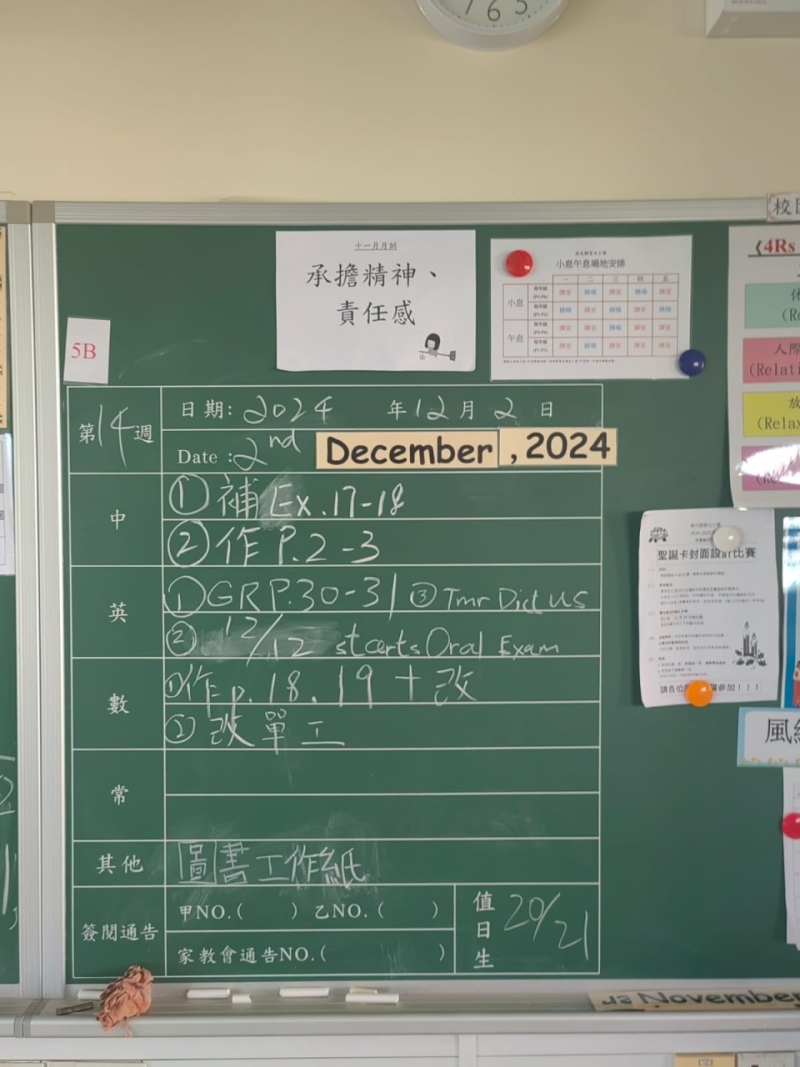 6
十一月月訓
承擔精神、
責任感
小息午息場地安排
一 二 三 四 五
小息
午息
5B
校
《4Rs
(Re
人際
(Relati
放
(Relax
第14週
日期: 2024 年12月2日
Date: 2nd December, 2024
中
① 補 Ex.17-18
② 作 P.2-3
英
① GRP.30-31 ③ Tmr Dict U5
② 12/12 starts Oral Exam
數
① 作 p.18.19 + 改
② 改單工
常
其他
圖書工作紙
簽閱通告
甲NO.( ) 乙NO.( )
家教會通告NO.( )
值日生
20/21
聖誕卡封面設計比賽
請各位 參加！！！
風紀
November